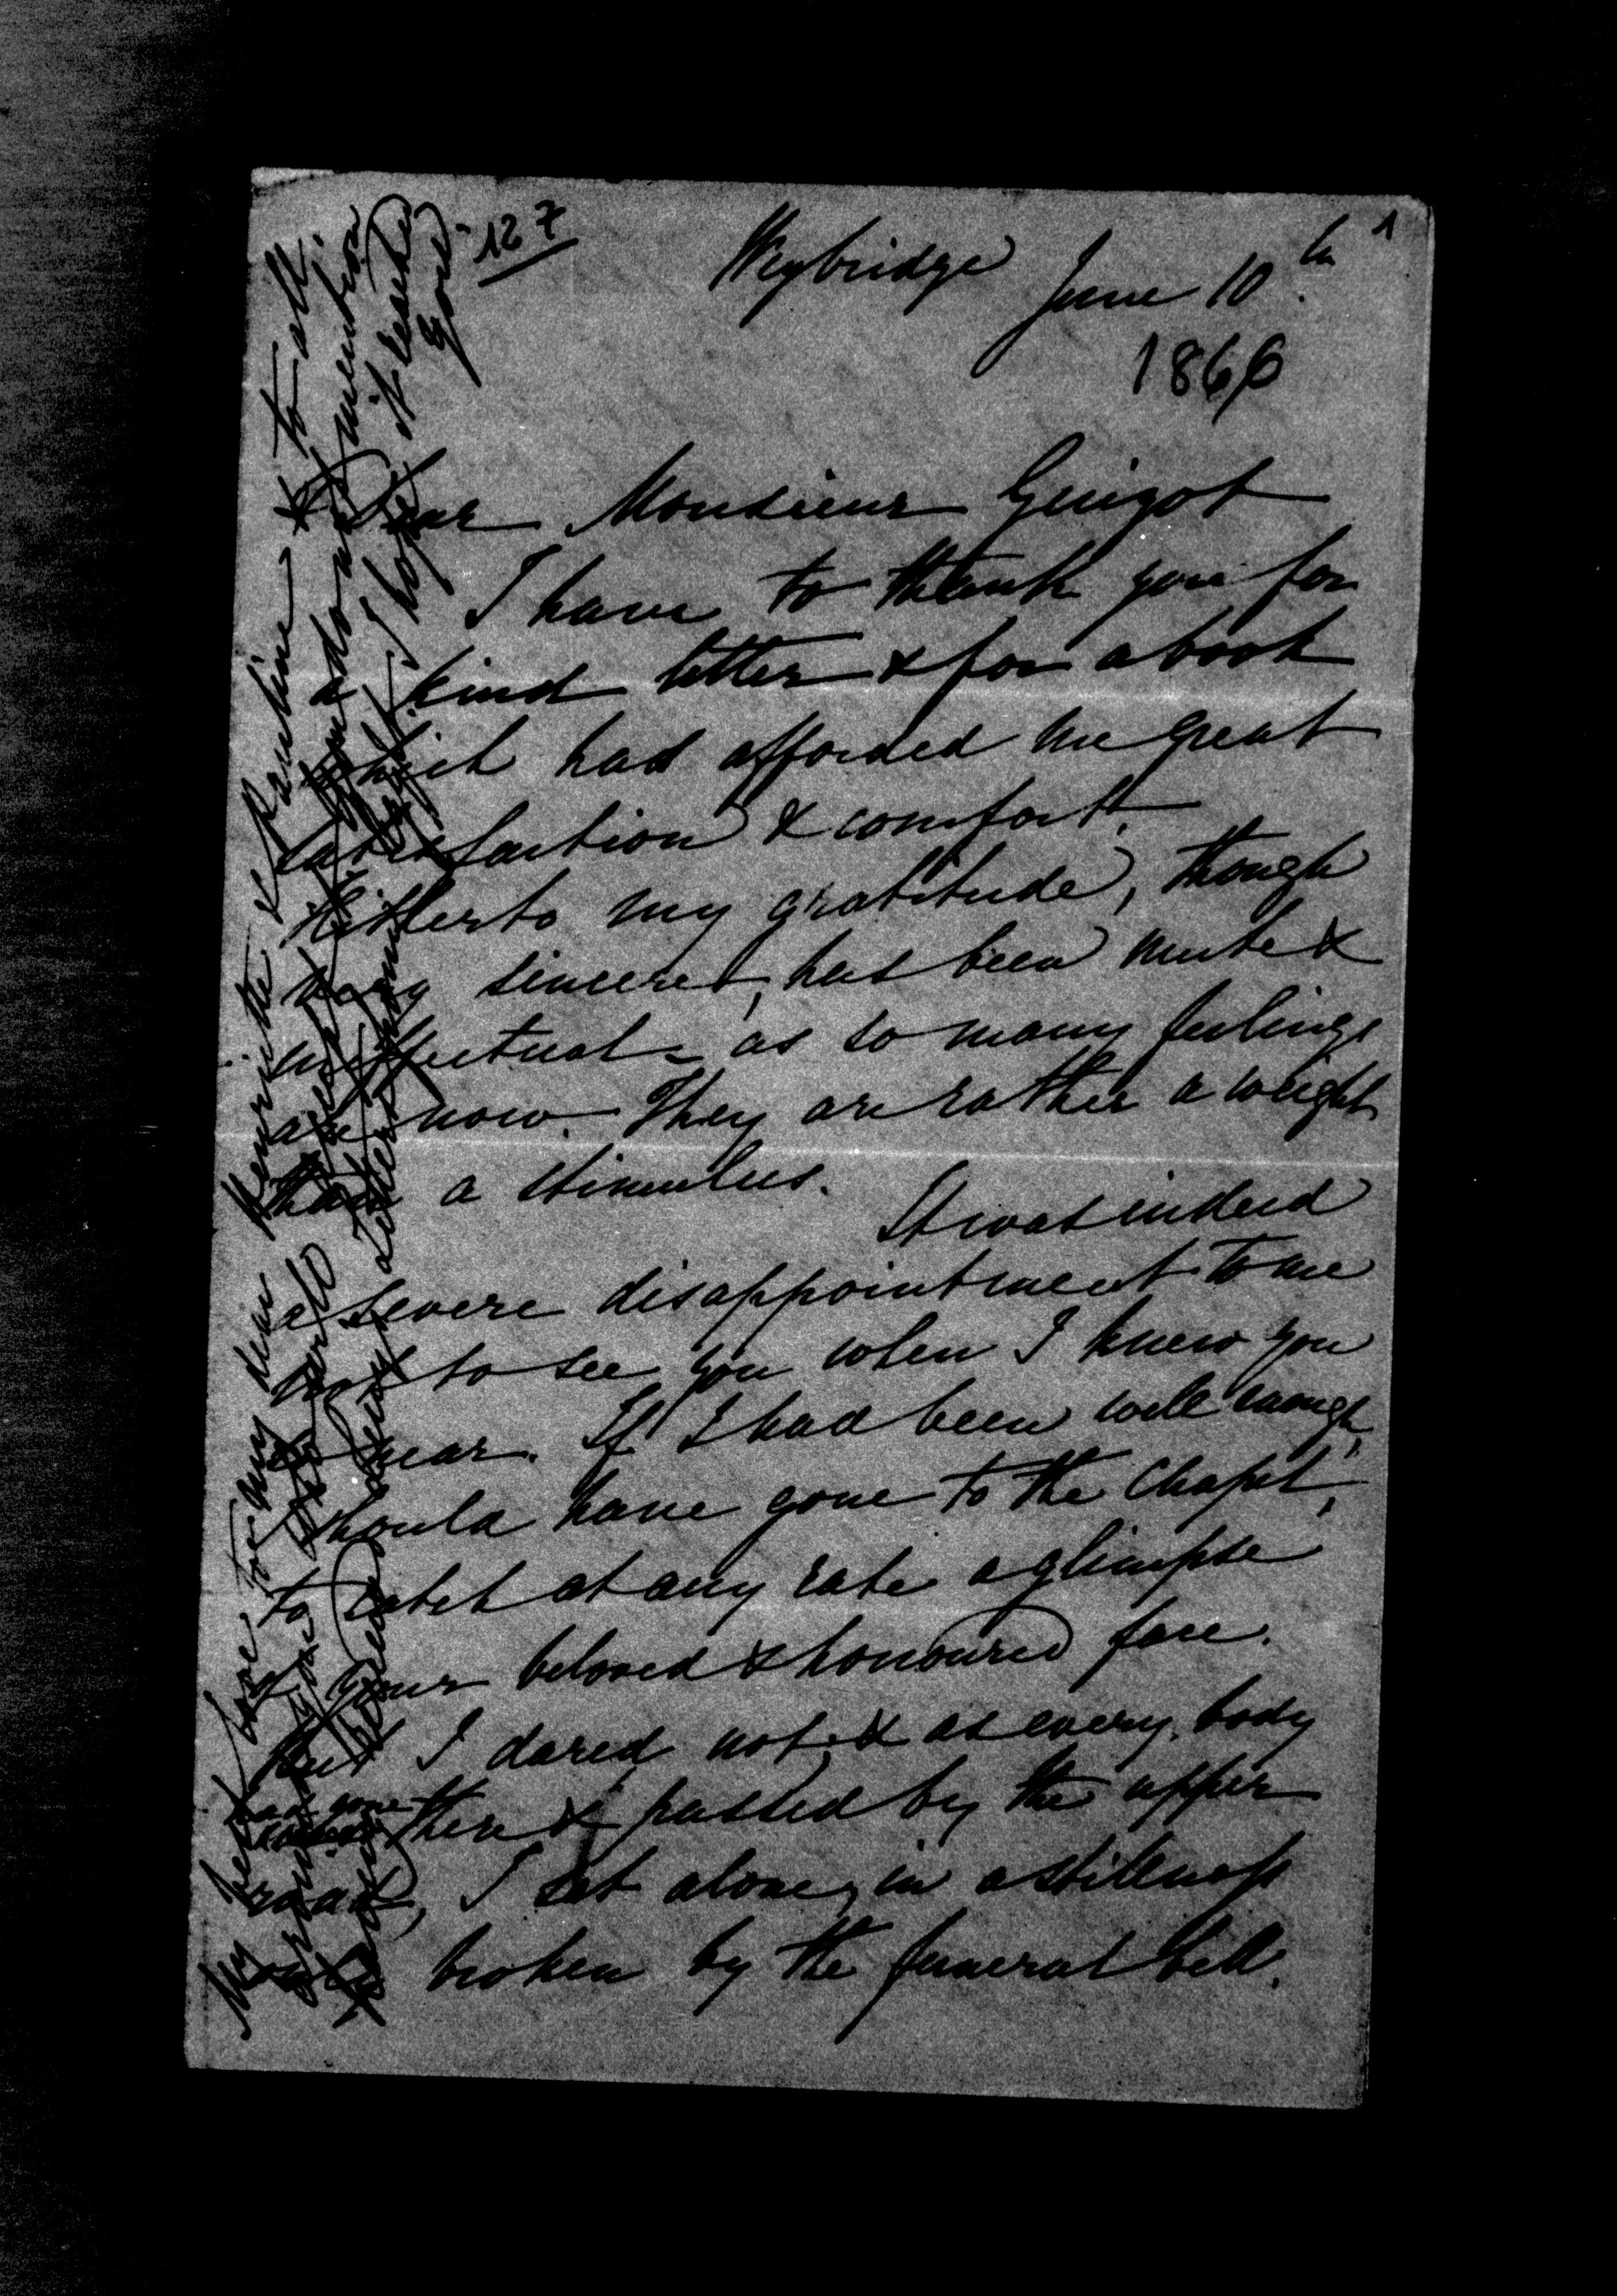 127
1
Weybridge June 10th.
1866
Dear Monsieur Guizot
I have to thank you for
a kind letter & for a book
which had afforded me great
satisfaction & comfort.
Hitherto my gratitude, though
very sincere, has been mute &
ineffectual – as so many feelings
are now. They are rather a weight
than a stimulus.
It was indeed
a severe disappointment to me
not to see you when I knew you
so near. If I had been well enough,
I should have gone to the Chapel,
to catch at any rate a glimpse
of your beloved & honoured face.
But I dared not, & as every body
had gone there & passed by the upper
road, I sat alone, in a stillness
only broken by the funeral bell.
My best love to my dear Henriette & Pauline & to all.
mention
I hope it reached
you